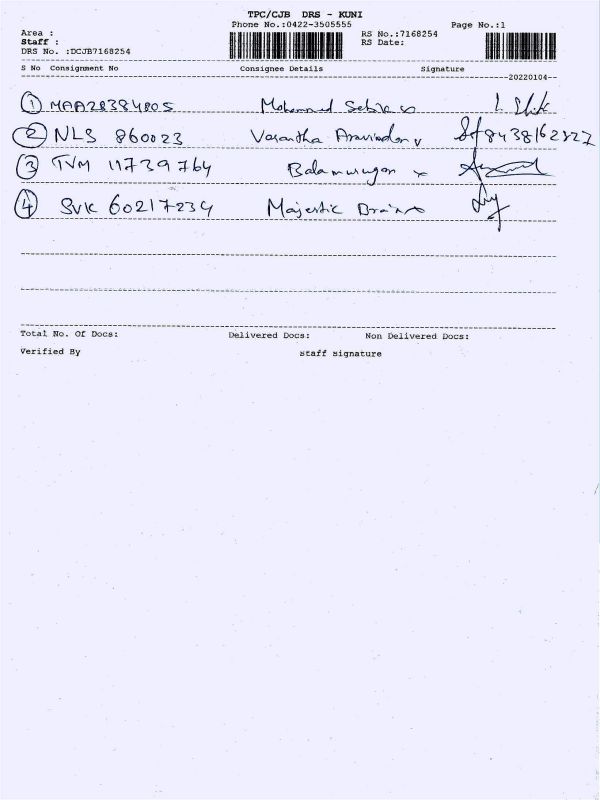 TPC/CJB DRS - KUNI
Phone No.:0422-3505555 Page No.:1
Area : RS No.:7168254
Staff : RS Date:
DRS No. :DCJB7168254
S No Consignment No Consignee Details Signature
20220104
1 MAA28384805 Mohammed
2 NLS 860023 Vasantha 8438162827
3 TVM 11739764 Balamurugan
4 SVK 60217234 Majestic
Total No. Of Docs: Delivered Docs: Non Delivered Docs:
Verified By staff signature